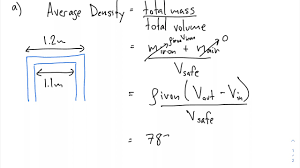 a) Average Density = total mass / total volume
1.2m
= m_iron + m_air / V_safe
ρ_iron V_iron 0
1.1m
= ρ_iron (V_out − V_in) / V_safe
= 78